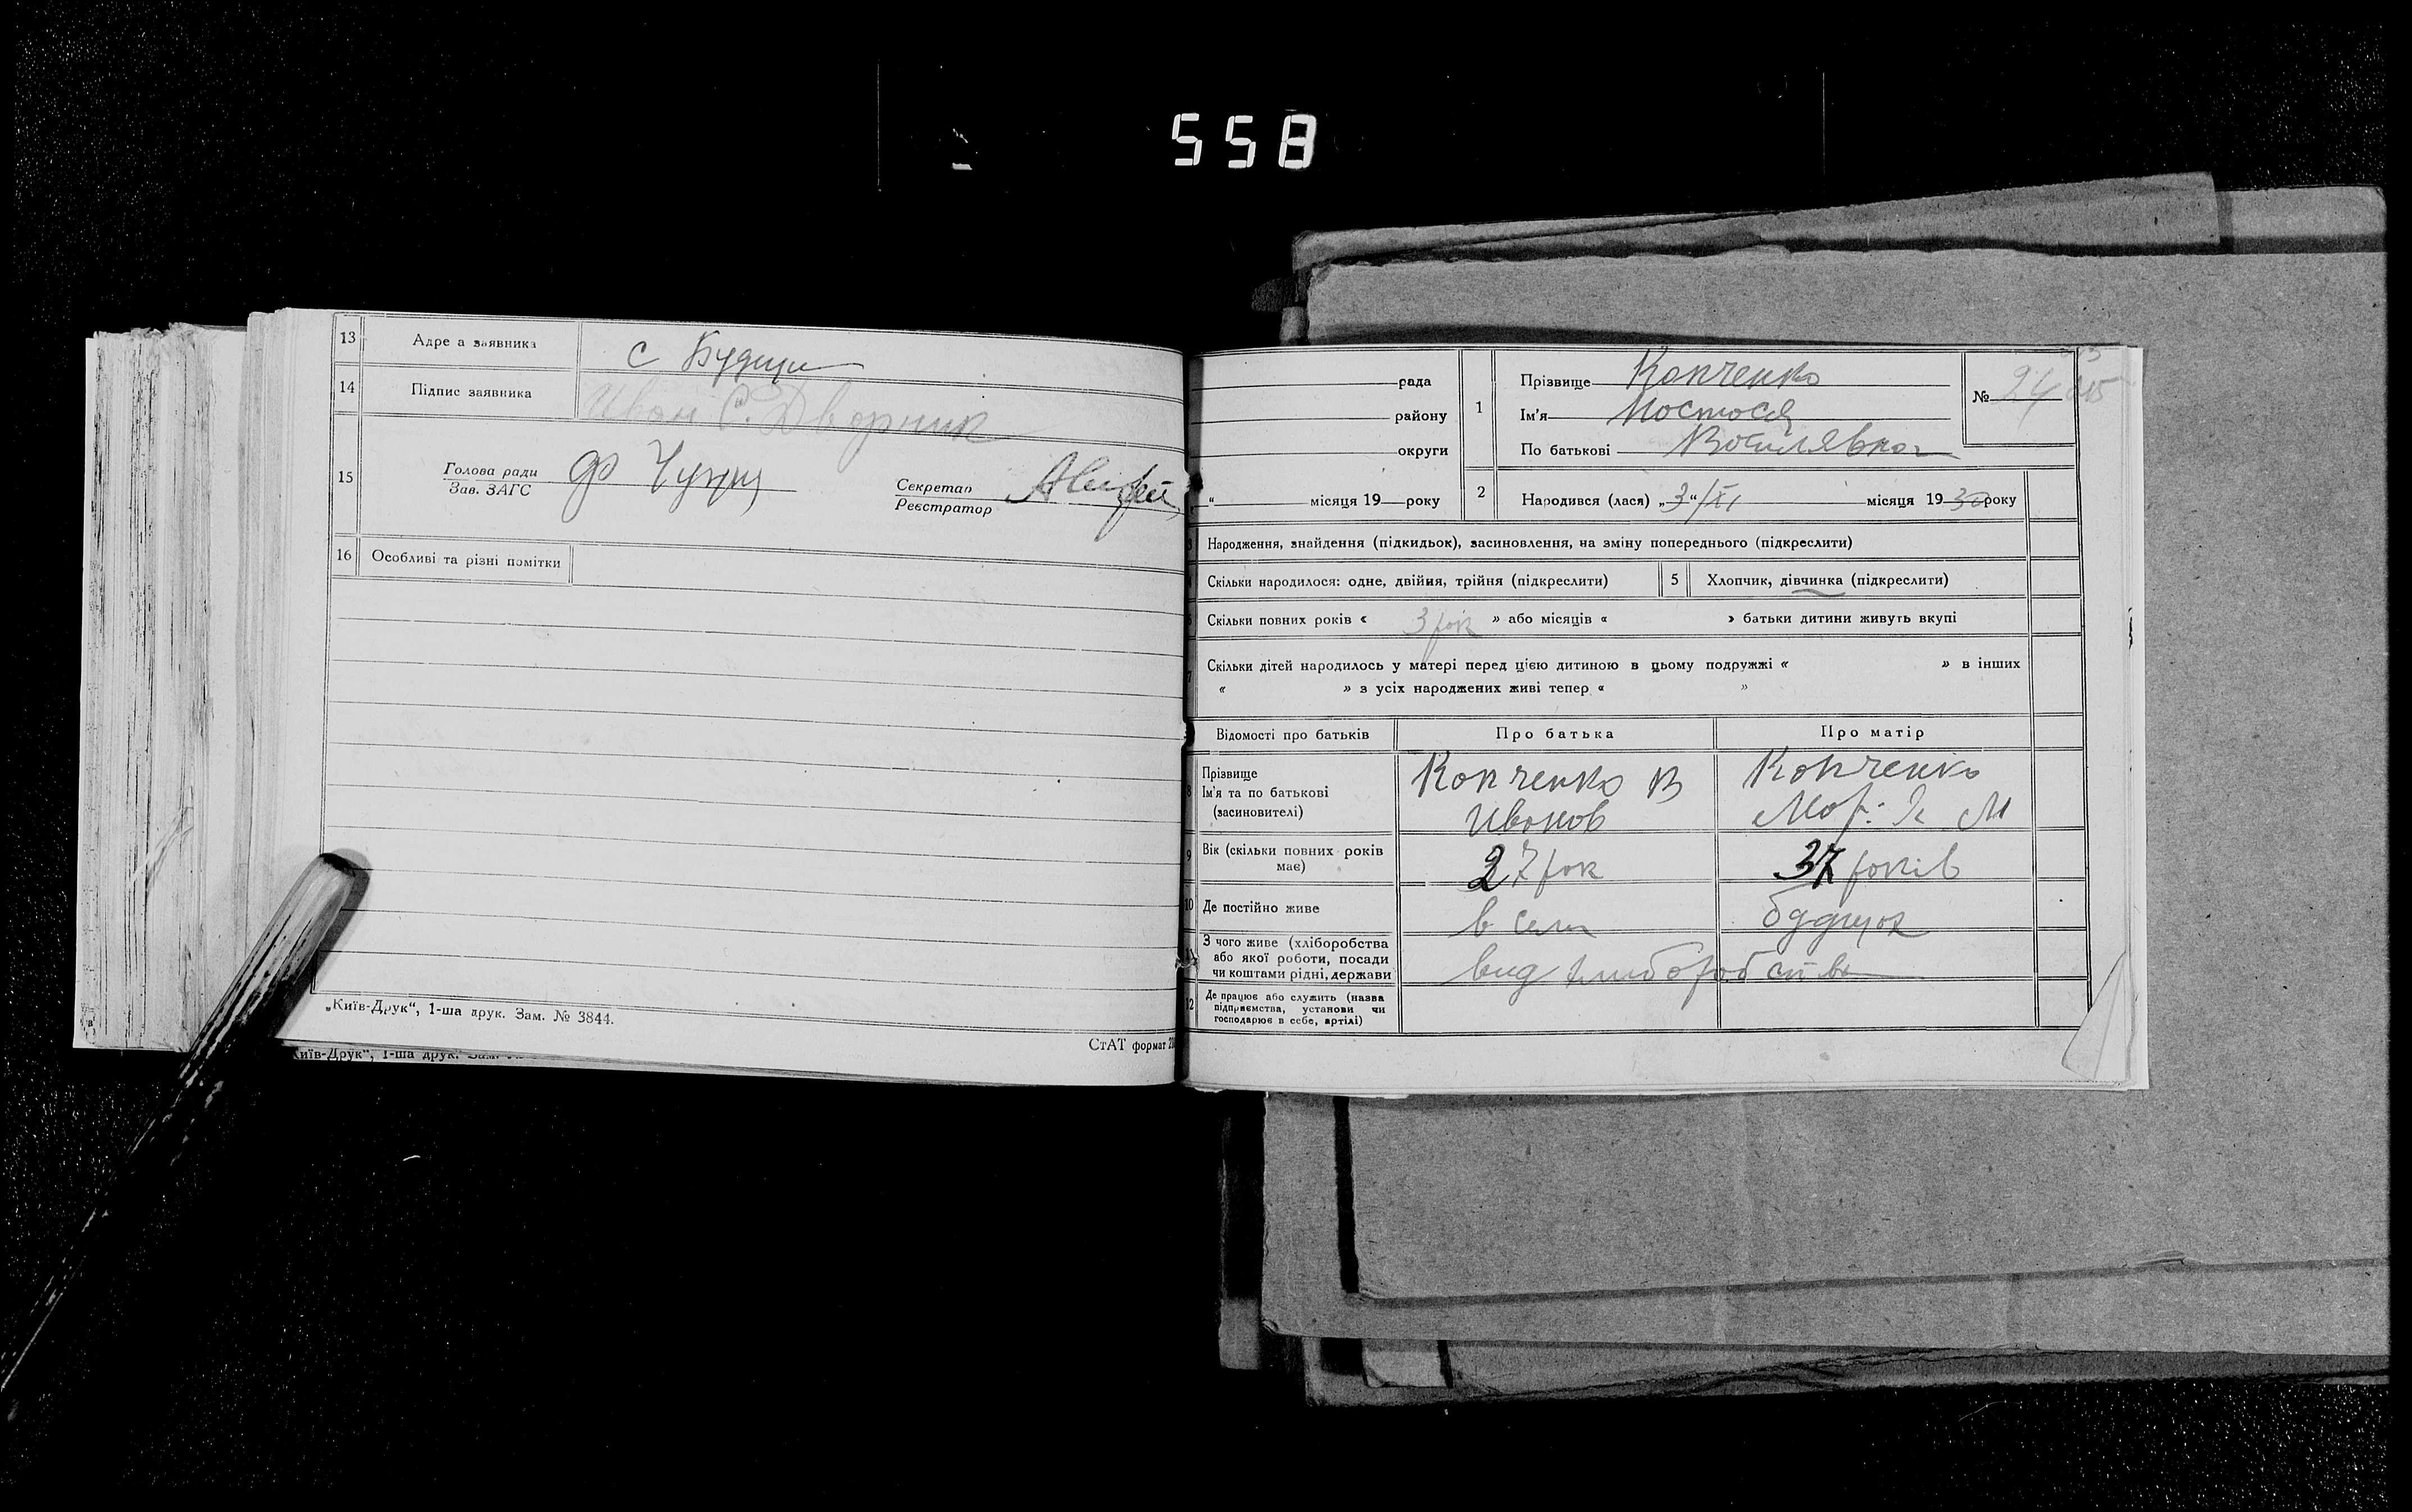 558
13 Адре а заявника с Будищи
14 Підпис заявника Иван С. Дворник
15 Голова ради
Зав. ЗАГС
Секретар
Реєстратор
16 Особливі та різні помітки
„Київ-Друк“, 1-ша друк. Зам. № 3844.
СтАТ формат
Київ-Друк“, 1-ша друк. Зам.
рада
району
округи
“ місяця 19 року
1 Прізвище Копченко
Ім'я Мостося
По батькові Василявна
№ 24
2 Народився (лася) „3“/XI місяця 1930 року
Народження, знайдення (підкидьок), засиновлення, на зміну попереднього (підкреслити)
Скільки народилося: одне, двійня, трійня (підкреслити) 5 Хлопчик, дівчинка (підкреслити)
Скільки повних років « 3 рок » або місяців « » батьки дитини живуть вкупі
7 Скільки дітей народилось у матері перед цією дитиною в цьому подружжі « » в інших
« » з усіх народжених живі тепер « »
Відомості про батьків Про батька Про матір
8 Прізвище
Ім'я та по батькові
(засиновителі)
Копченко В
Ивонов
Копченко
М
9 Вік (скільки повних років
має)
27 рок
37 років
10 Де постійно живе в сели будищох
11 З чого живе (хліборобства
або якої роботи, посади
чи коштами рідні, держави
вид хлиборобства
12 Де працює або служить (назва
підприємства, установи чи
господарює в себе, артілі)